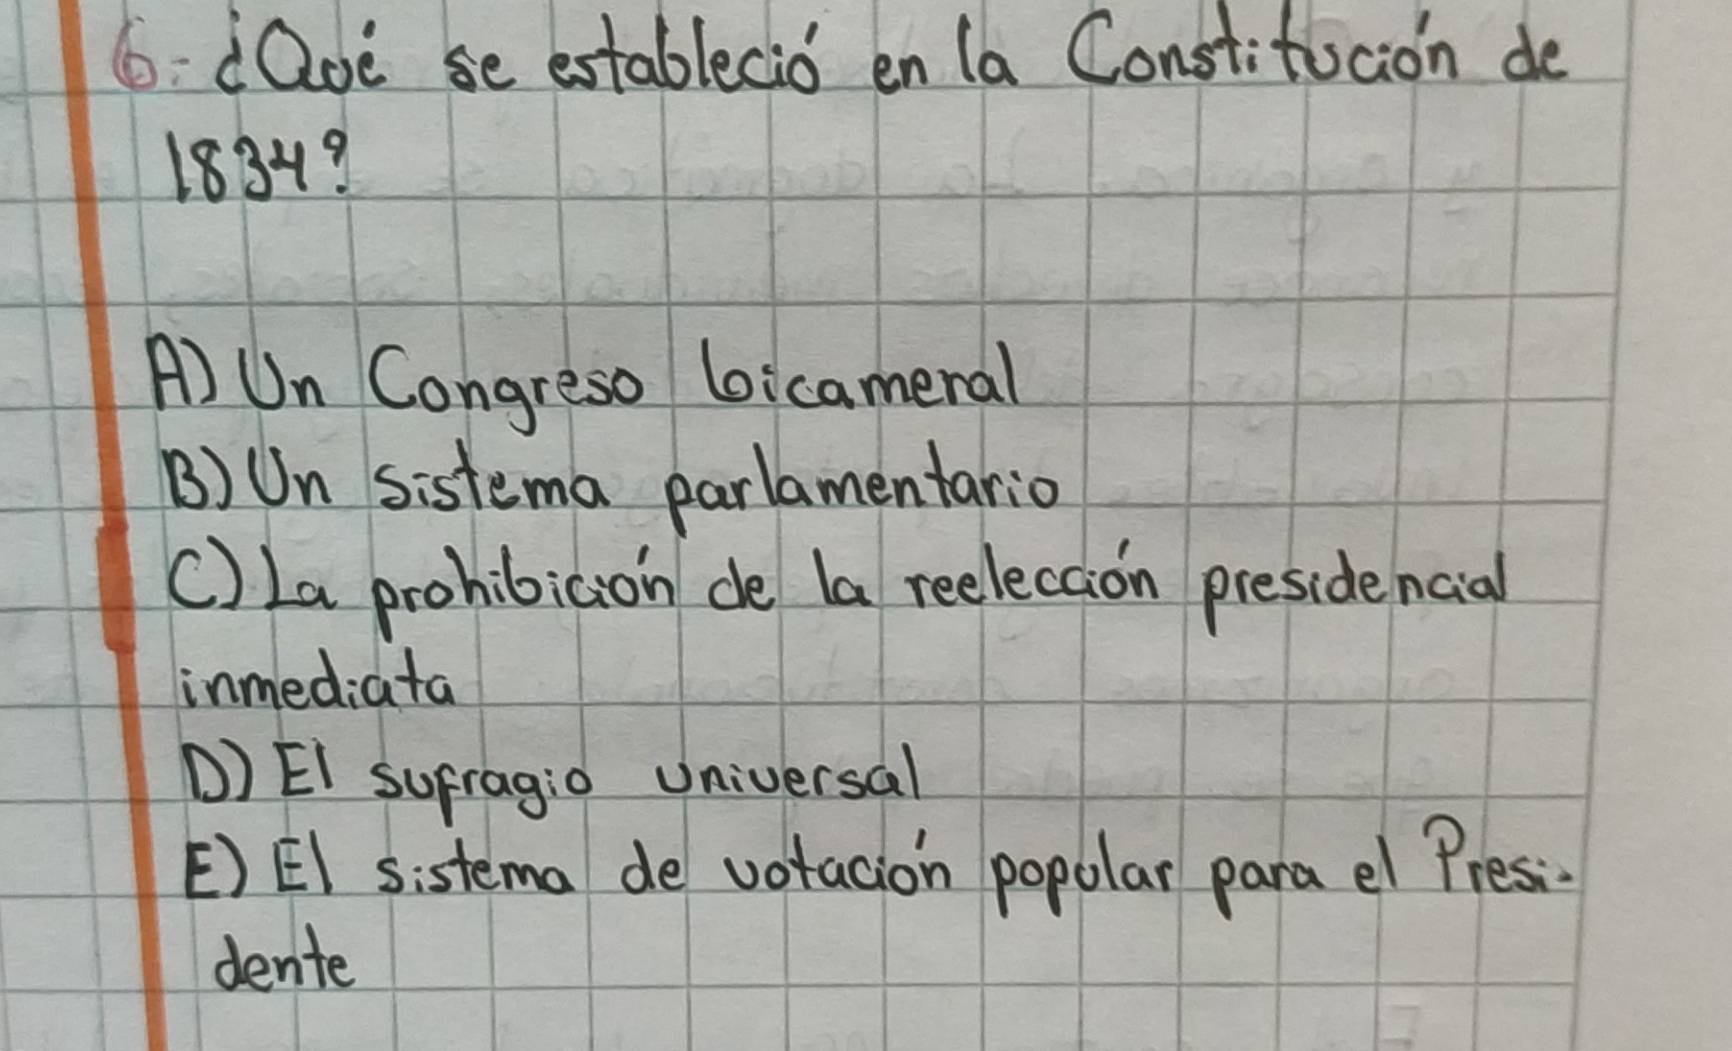 6.- ¿Qué se estableció en la Constitución de
1834?
A) Un Congreso bicameral
B) Un sistema parlamentario
C) La prohibición de la reelección presidencial
inmediata
D) El sufragio universal
E) El sistema de votación popular para el Presi-
dente